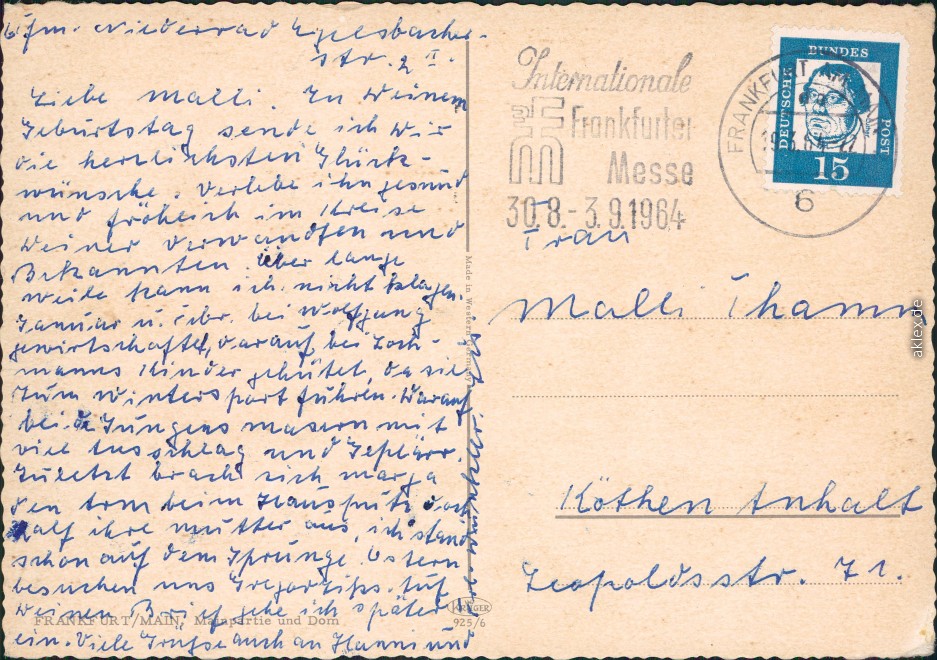 Ffm. Niederrad Egelsbacher-
str. 2 I.
Liebe Malli. Zu Deinem
Geburtstag sende ich Dir
die herzlichsten Glück-
wünsche. Verlebe ihn gesund
und fröhlich im Kreise
Deiner Verwandten und
Bekannten. Über lange
weile kann ich nicht klagen.
Januar u. Febr. bei Wolfgang
gewirtschaftet, darauf bei
manns Kinder gehütet, da sie
zum Wintersport fuhren. Darauf
bei de Jungens masern mit
viel Ausschlag und Geplärr.
Zuletzt brach sich Marga
den Arm beim Hausputz, doch
half ihre Mutter aus, ich stand
schon auf dem Sprunge. Ostern
besuchen uns Gregor Zipps. Auf
Deinen Brief gehe ich später
ein. Viele Grüße auch an Hanni und
FRANKFURT/MAIN, Mainpartie und Dom
Made in Western Germany
KRÜGER
925/6
Internationale
Frankfurter
Messe
30.8.-3.9.1964
FRANKFURT AM MAIN
6
DEUTSCHE BUNDES POST
15
Frau
Malli Thamm
Köthen Anhalt
Leopoldsstr. 71.
aklex.de